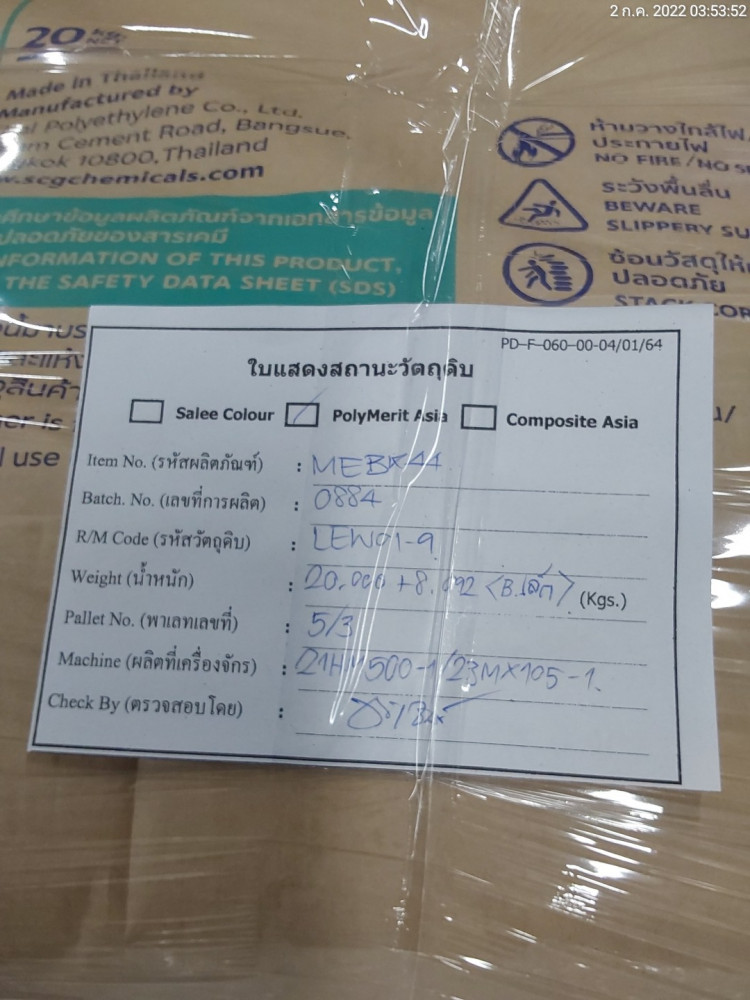 2 ก.ค. 2022 03:53:52
20 kg. NET
Made in Thailand
Manufactured by
Polyethylene Co., Ltd.
Cement Road, Bangsue,
10800, Thailand
.scgchemicals.com
ศึกษาข้อมูลผลิตภัณฑ์จากเอกสารข้อมูล
ปลอดภัยของสารเคมี
INFORMATION OF THIS PRODUCT,
THE SAFETY DATA SHEET (SDS)
ห้ามวางใกล้ไฟ/
ประกายไฟ
NO FIRE/NO
ระวังพื้นลื่น
BEWARE
SLIPPERY
ซ้อนวัสดุให้
ปลอดภัย
STACK
use
PD-F-060-00-04/01/64
ใบแสดงสถานะวัตถุดิบ
Salee Colour PolyMerit Asia Composite Asia
Item No. (รหัสผลิตภัณฑ์) : MEBK44
Batch. No. (เลขที่การผลิต) : 0884
R/M Code (รหัสวัตถุดิบ) : LEW01-9
Weight (น้ำหนัก) : 20.000 +8.092 (Kgs.)
Pallet No. (พาเลทเลขที่) : 5/3
Machine (ผลิตที่เครื่องจักร) : 21HM500-1/23MX105-1.
Check By (ตรวจสอบโดย) :